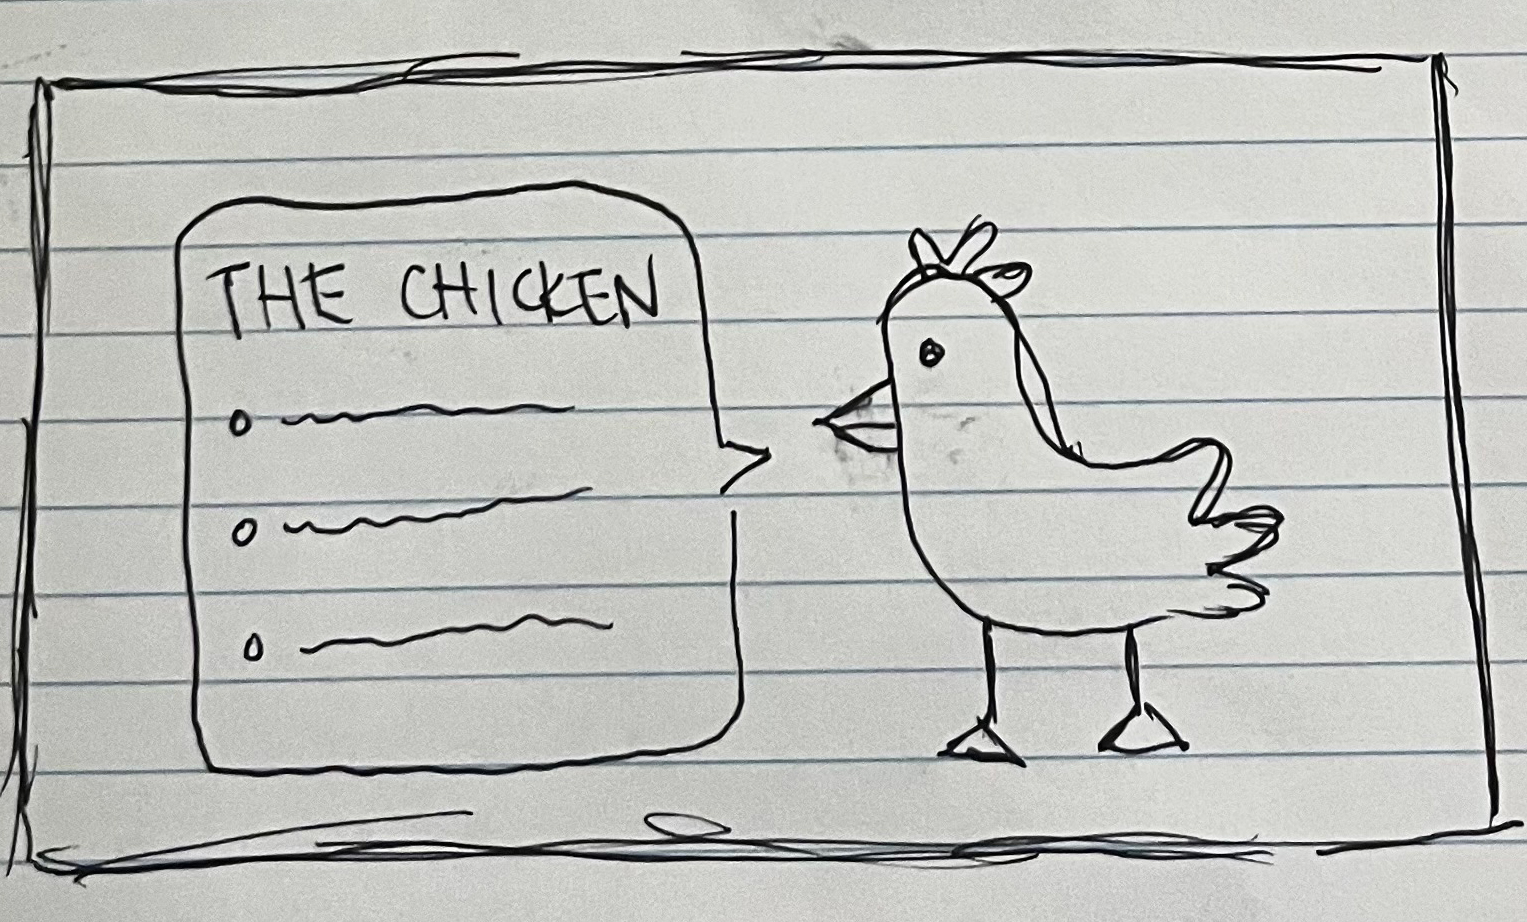 THE CHICKEN